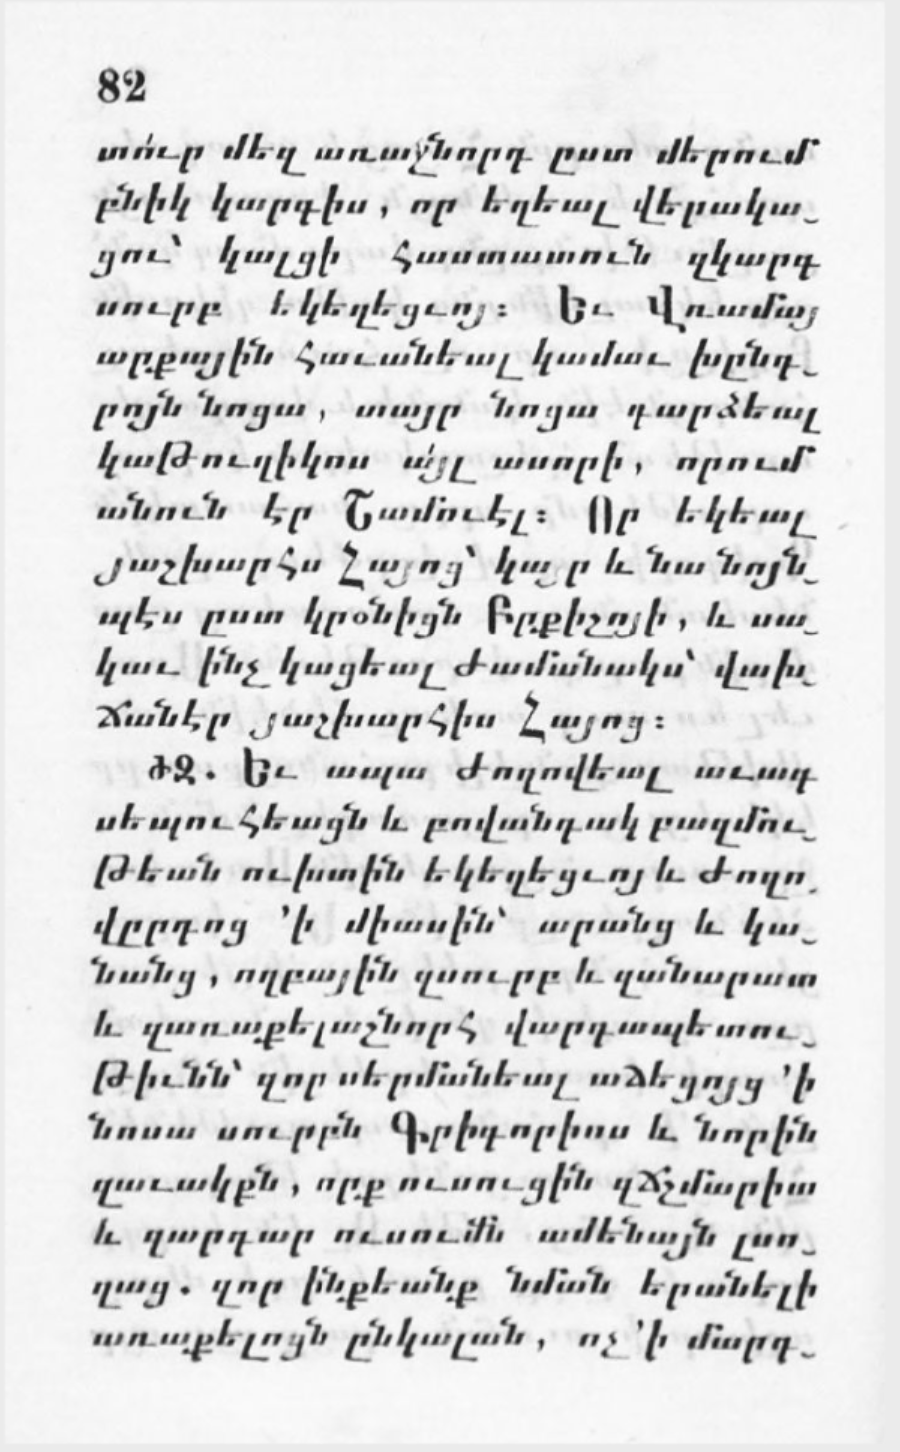 82
տո՛ւր մեզ առաջնորդ ըստ մերում
բնիկ կարգիս, որ եղեալ վերակա֊
ցու՝ կալցի հաստատուն զկարգ
սուրբ եկեղեցւոյ։ Եւ Վռամայ
արքային հաւանեալ կամաւ խընդ֊
րոյն նոցա, տայր նոցա դարձեալ
կաթուղիկոս ա՛յլ ասորի, որում
անուն էր Շամուէլ։ Որ եկեալ
յաշխարհս Հայոց՝ կայր և նա նոյն֊
պէս ըստ կրօնիցն Բրքիշոյի, և սա֊
կաւ ինչ կացեալ ժամանակս՝ վախ֊
ճանէր յաշխարհիս Հայոց։
ԺԶ. Եւ ապա ժողովեալ աւագ
սեպուհեացն և բովանդակ բազմու֊
թեան ուխտին եկեղեցւոյ և ժողո֊
վըրդոց ՚ի միասին՝ արանց և կա֊
նանց, ողբային զսուրբ և զանարատ
և զառաքելաշնորհ վարդապետու֊
թիւնն՝ զոր սերմանեալ աճեցոյց ՚ի
նոսա սուրբն Գրիգորիոս և նորին
զաւակքն, որք ուսուցին զճշմարիտ
և զարդար ուսումն ամենայն լսո֊
ղաց. զոր ինքեանք նման երանելի
առաքելոցն ընկալան, ոչ ՚ի մարդ֊